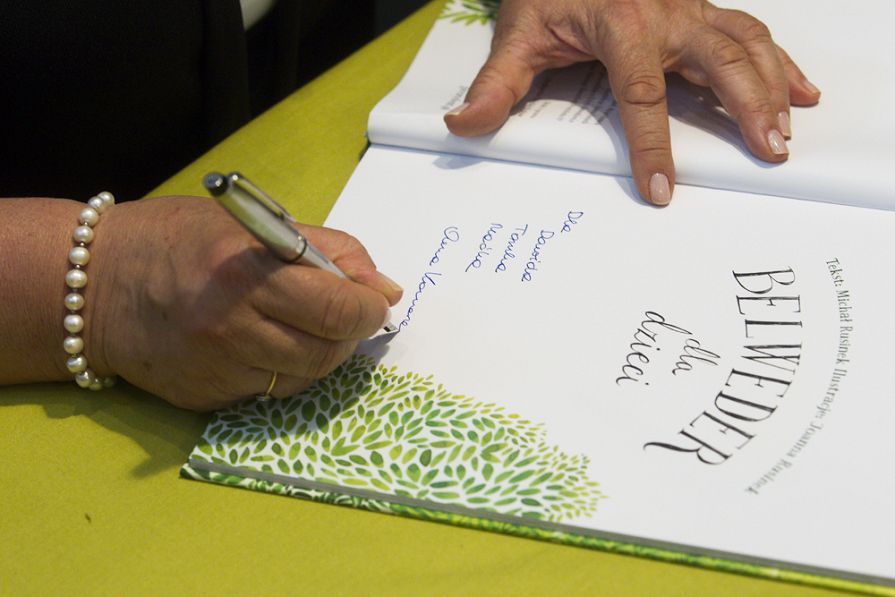 Tekst: Michał Rusinek Ilustracje: Joanna Rusinek
BELWEDER
dla
dzieci
Dla
Dawida
Tomka
Anna